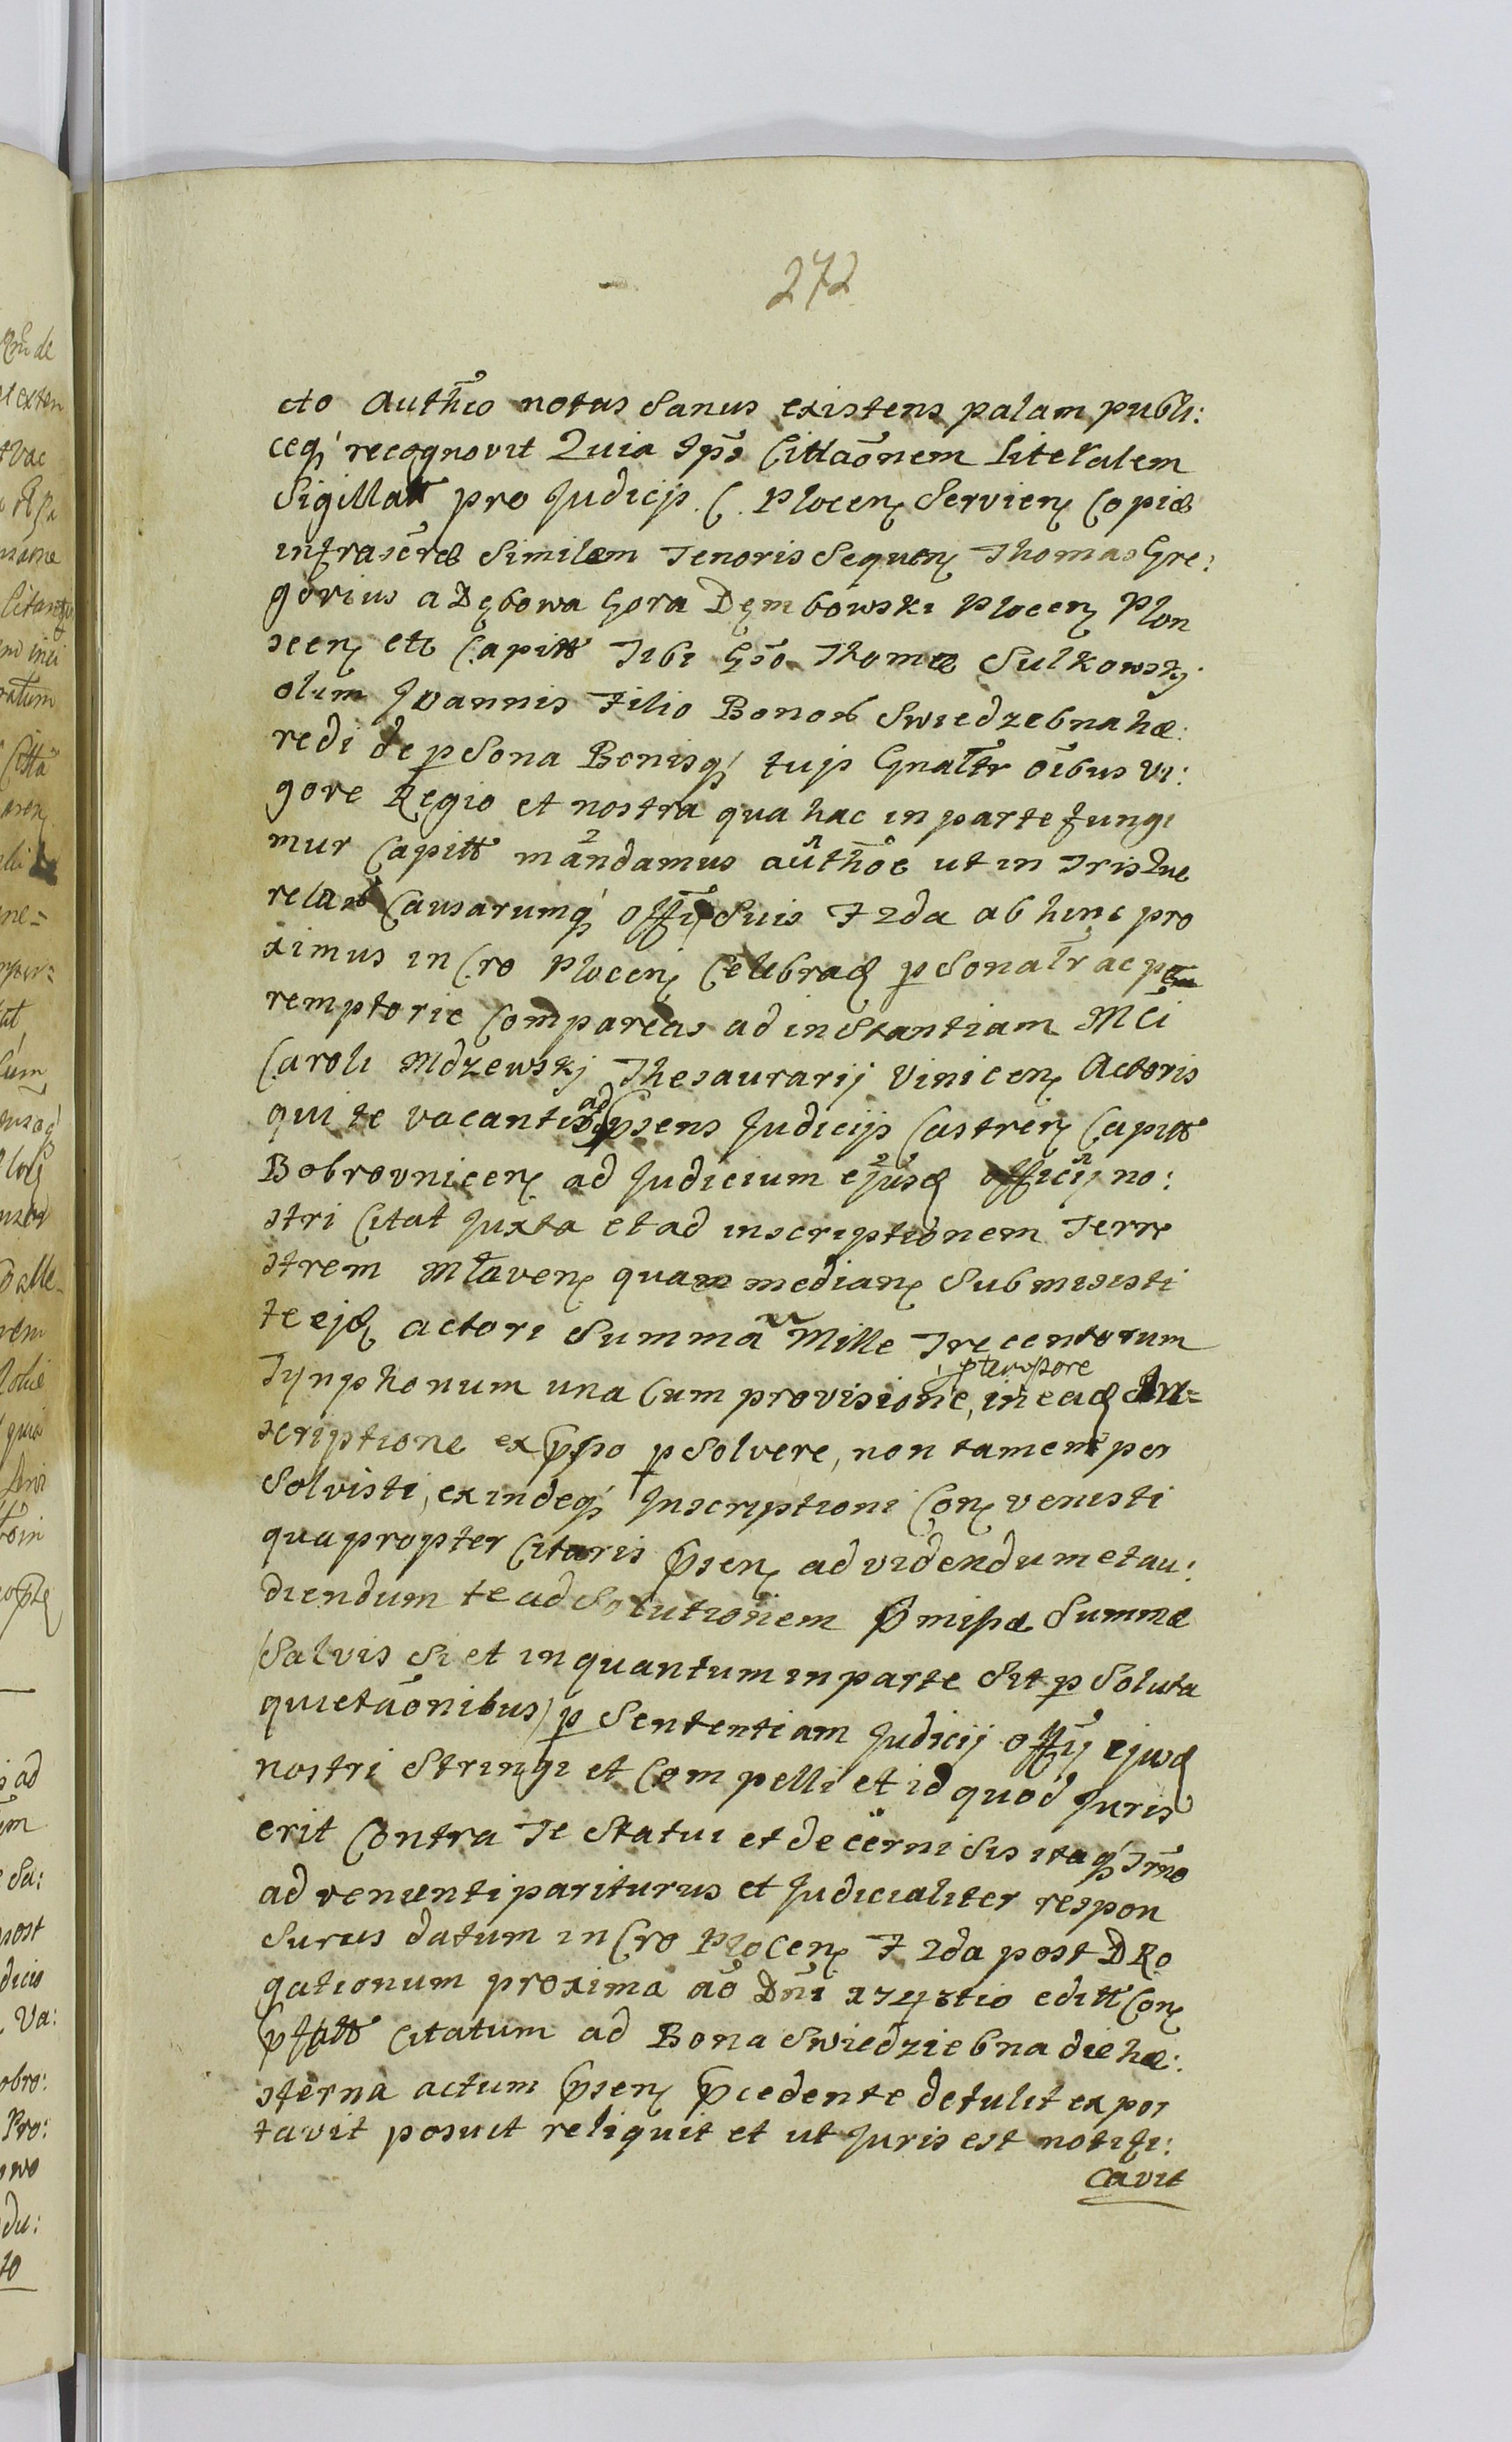 272
cto Authẽo notus Sanus existens palam publi:
ceq́ recognovit Quia Ips̃e Cittaõnem Literalem
Sigillatt pro Judicijs C. Plocen̨ Servien̨ Copiæ
infrascr̃æ Similem Tenoris Sequen̨ Thomas Gre:
gorius a Dębowa Gora Dęmbowski Plocen̨ Plon
scen̨ etc Capitt Tibi Gs̃o Thomæ Sulkowskj
olim Joannis Filio Bonorb Swiedzebna hæ:
redi de pSona Bonisq́ tujs Gnaltr õibus Vi:
gore Regio et nostra qua hac in parte fungi
mur Capitt mandamus authõe ut in Tris Que
relarb Causarumq́ offĩj Suis F 2da ab hinc pro
ximus in Cro Plocen̨ Celebrad pSonalr̃ ac pe
remptorie Compareas ad instantiam Mc̃i
Caroli Mdzewskj Thesaurarij Vinicen̨ Actoris
qui te vacantis ad p̃sens Judicijs Castren̨ Capitt
Bobrovnicen̨ ad Judicium ejusd officij no:
stri Citat Juxta et ad inscriptionem Terre
strem Mlaven̨ quam median̨ Submisisti
te ejd actori Summã Mille Trecentorum
Tynphonum una Cum provisione, p tempore in ead In=
scriptione exp̃sso pSolvere, non tamen per
Solvisti, exindeq́ Inscriptioni Con̨venisti
quapropter Citaris p̃sen̨ ad videndum et au:
diendum te ad Solutionem p̃missæ Summæ
(Salvis Si et in quantum in parte Sit pSoluta
quietaõnibus) p Sententiam Judicij offĩj ejusd
nostri Stringi et Compelli et id quod Juris
erit Contra Te Statui et decerni Sis itaq́ Trm̃o
ad venienti pariturus et Judicialiter respon
Surus datum in Cro Plocen̨ F 2da post D Ro
gationum proxima aõ Dñi 1743tio editt Con̨
p̃fatt Citatum ad Bona Swiedziebna die he:
sterna actum p̃sen̨ p̃cedente detulit expor
tavit posuit reliquit et ut Juris est notifi:
cavit